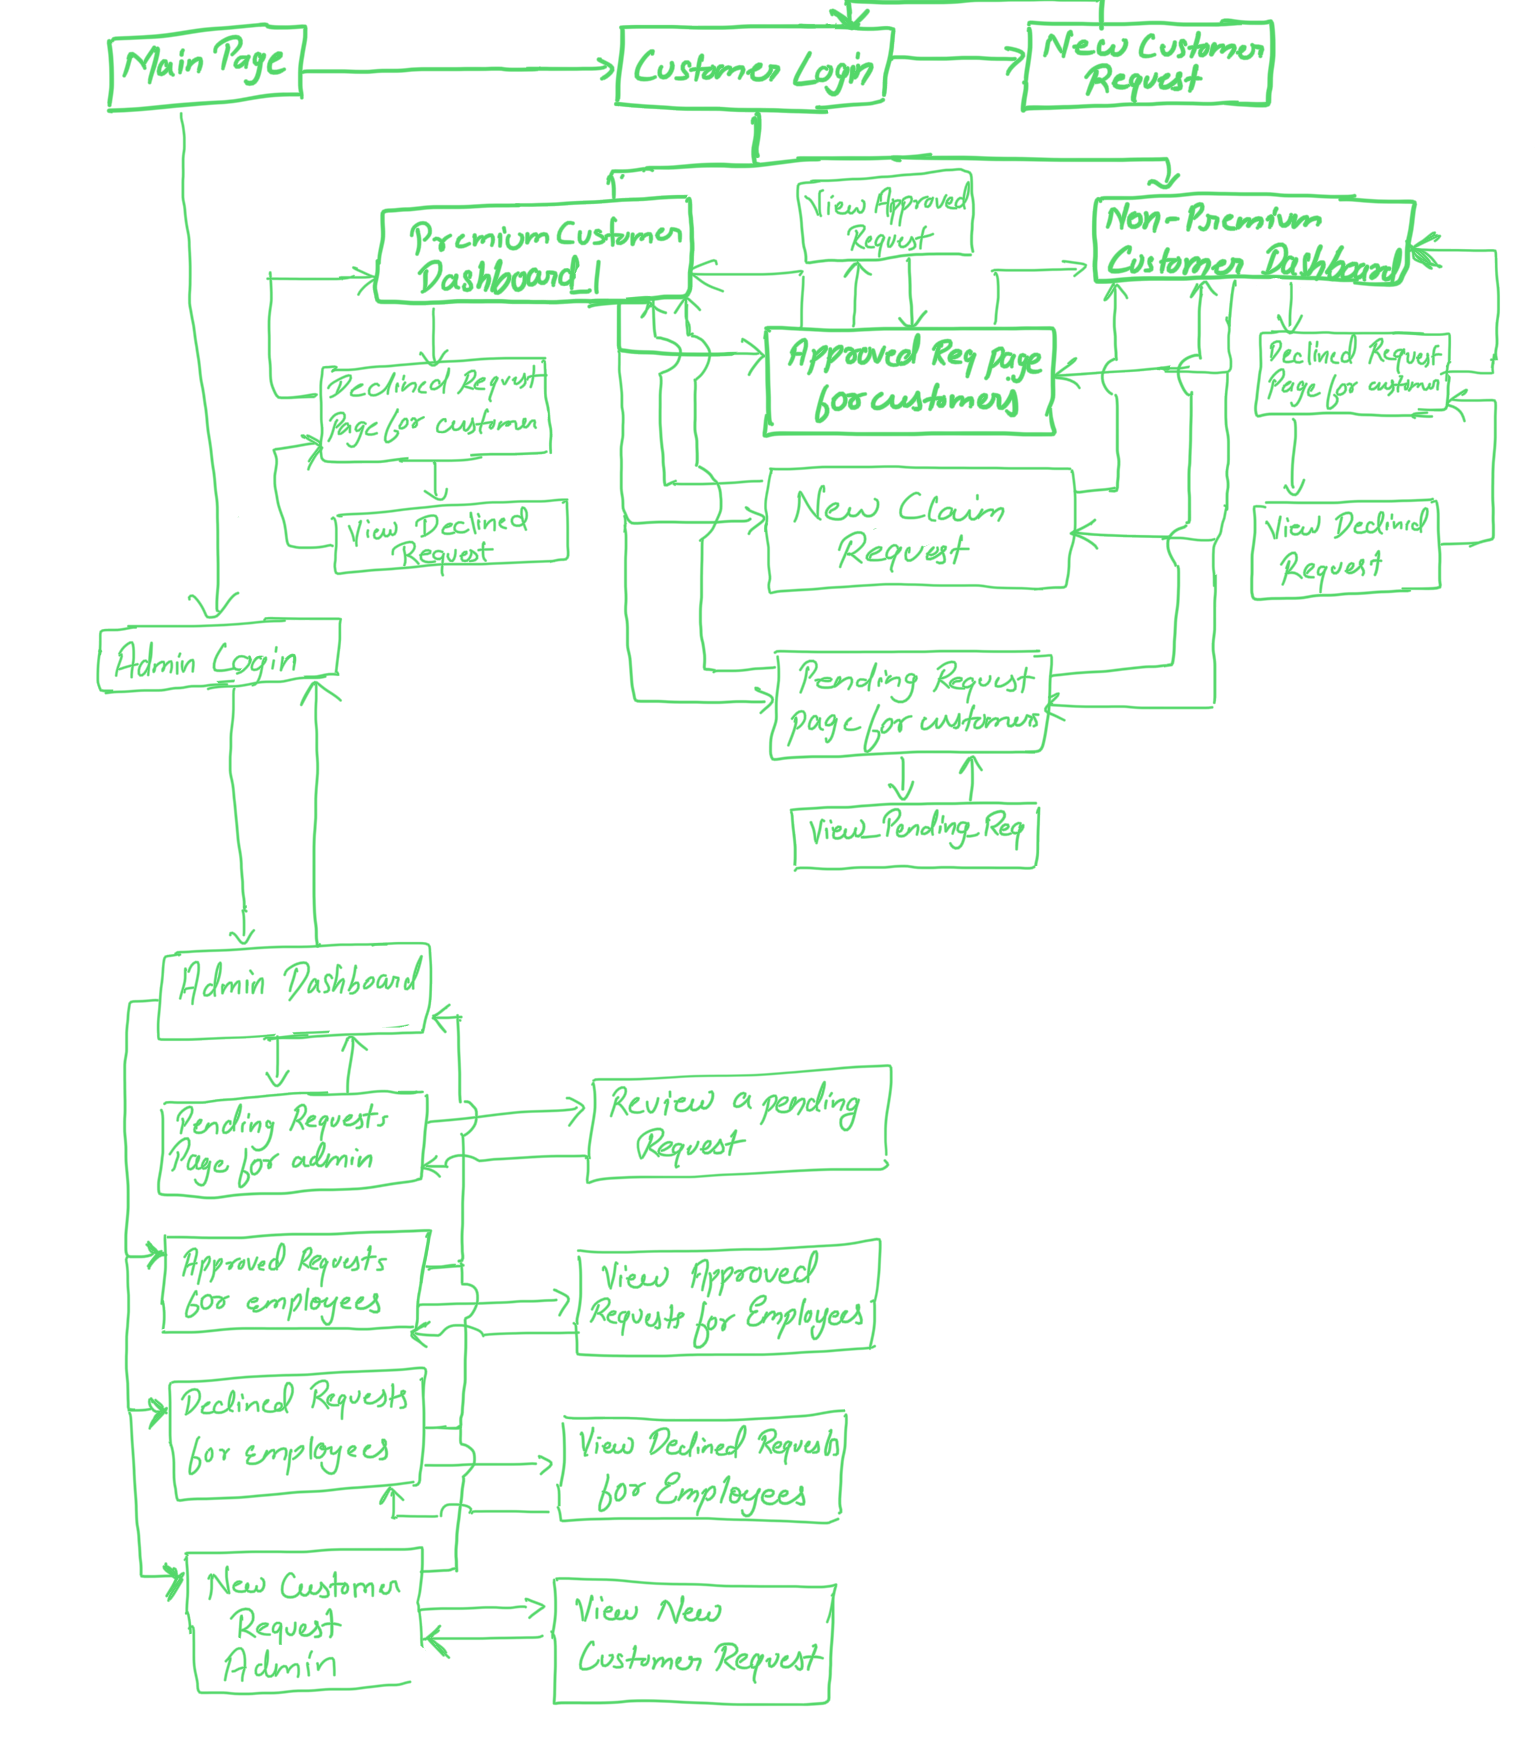 Main Page
Customer Login
New Customer
Request
Premium Customer
Dashboard_1
View Approved
Request
Non-Premium
Customer Dashboard
Declined Request
Page for customer
View Declined
Request
Approved Req page
for customers
Declined Request
Page for customer
View Declined
Request
New Claim
Request
Pending Request
page for customers
View_Pending_Req
Admin Login
Admin Dashboard
Pending Requests
Page for admin
Review a pending
Request
Approved Requests
for employees
View Approved
Requests for Employees
Declined Requests
for employees
View Declined Requests
for Employees
New Customer
Request
Admin
View New
Customer Request